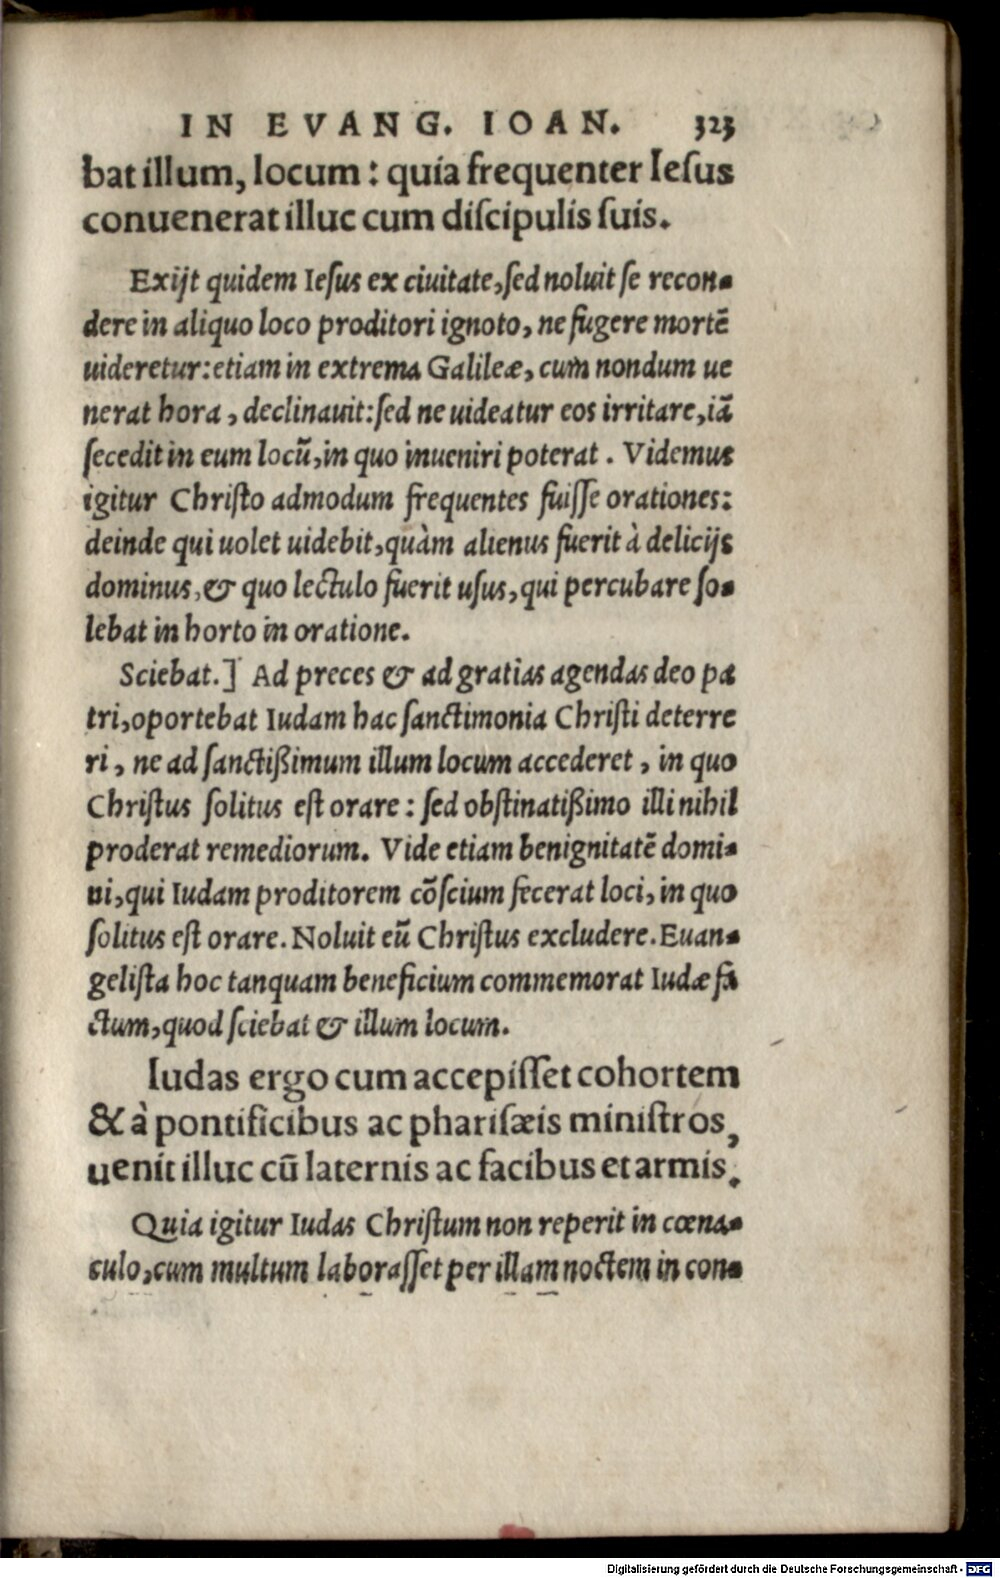 IN EVANG. IOAN. 323
bat illum, locum: quia frequenter Iesus
conuenerat illuc cum discipulis suis.
Exijt quidem Iesus ex ciuitate, sed noluit se recon-
dere in aliquo loco proditori ignoto, ne fugere mortē
uideretur: etiam in extrema Galileæ, cum nondum ue
nerat hora, declinauit: sed ne uideatur eos irritare, iā
secedit in eum locū, in quo inueniri poterat. Videmus
igitur Christo admodum frequentes fuisse orationes:
deinde qui uolet uidebit, quàm alienus fuerit à delicijs
dominus, & quo lectulo fuerit usus, qui percubare so-
lebat in horto in oratione.
Sciebat.] Ad preces & ad gratias agendas deo pa
tri, oportebat Iudam hac sanctimonia Christi deterre
ri, ne ad sanctißimum illum locum accederet, in quo
Christus solitus est orare: sed obstinatißimo illi nihil
proderat remediorum. Vide etiam benignitatē domi-
ni, qui Iudam proditorem cōscium fecerat loci, in quo
solitus est orare. Noluit eū Christus excludere. Euan-
gelista hoc tanquam beneficium commemorat Iudæ fa
ctum, quod sciebat & illum locum.
Iudas ergo cum accepisset cohortem
& à pontificibus ac pharisæis ministros,
uenit illuc cū laternis ac facibus et armis.
Quia igitur Iudas Christum non reperit in cœna-
culo, cum multum laborasset per illam noctem in con-
Digitalisierung gefördert durch die Deutsche Forschungsgemeinschaft - DFG